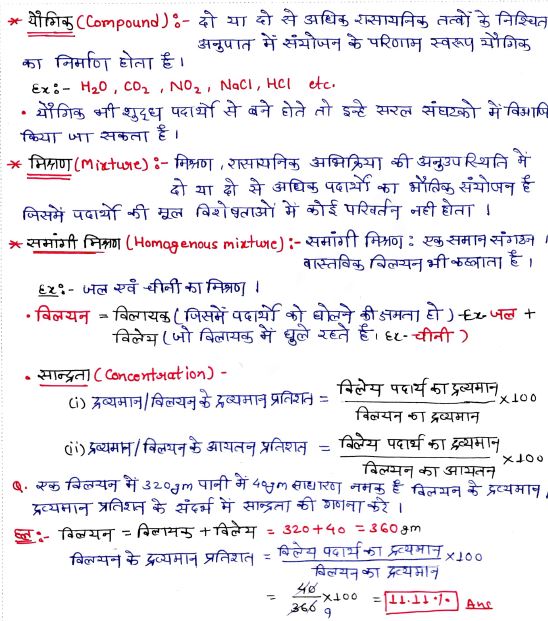 * यौगिक (Compound) :- दो या दो से अधिक रासायनिक तत्वों के निश्चित
अनुपात में संयोजन के परिणाम स्वरूप यौगिक
का निर्माण होता है।
Ex:- H₂O, CO₂, NO₂, NaCl, HCl etc.
• यौगिक भी शुद्ध पदार्थो से बने होते तो इन्हे सरल संघटको में विभाजि
किया जा सकता है।
* मिश्रण (Mixture) :- मिश्रण, रासायनिक अभिक्रिया की अनुउपस्थिति में
दो या दो से अधिक पदार्थो का भौतिक संयोजन है
जिसमें पदार्थो की मूल विशेषताओं में कोई परिवर्तन नही होता ।
* समांगी मिश्रण (Homogenous mixture) :- समांगी मिश्रण : एक समान संगठन ।
वास्तविक विलयन भी कहलाता है।
Ex:- जल एवं चीनी का मिश्रण ।
• विलयन = विलायक (जिसमें पदार्थो को घोलने की क्षमता हो) -Ex- जल +
विलेय (जो विलायक में घुले रहते है। Ex- चीनी )
• सान्द्रता (Concentration) -
(i) द्रव्यमान/विलयन के द्रव्यमान प्रतिशत = विलेय पदार्थ का द्रव्यमान / विलयन का द्रव्यमान × 100
(ii) द्रव्यमान/विलयन के आयतन प्रतिशत = विलेय पदार्थ का द्रव्यमान / विलयन का आयतन × 100
Q. एक विलयन में 320gm पानी में 40gm साधारण नमक है विलयन के द्रव्यमान,
द्रव्यमान प्रतिशत के संदर्भ में सान्द्रता की गणना करे ।
हल :- विलयन = विलायक + विलेय = 320+40 = 360gm
विलयन के द्रव्यमान प्रतिशत = विलेय पदार्थ का द्रव्यमान / विलयन का द्रव्यमान × 100
= 40 / 360 × 100 = 11.11% Ans
9